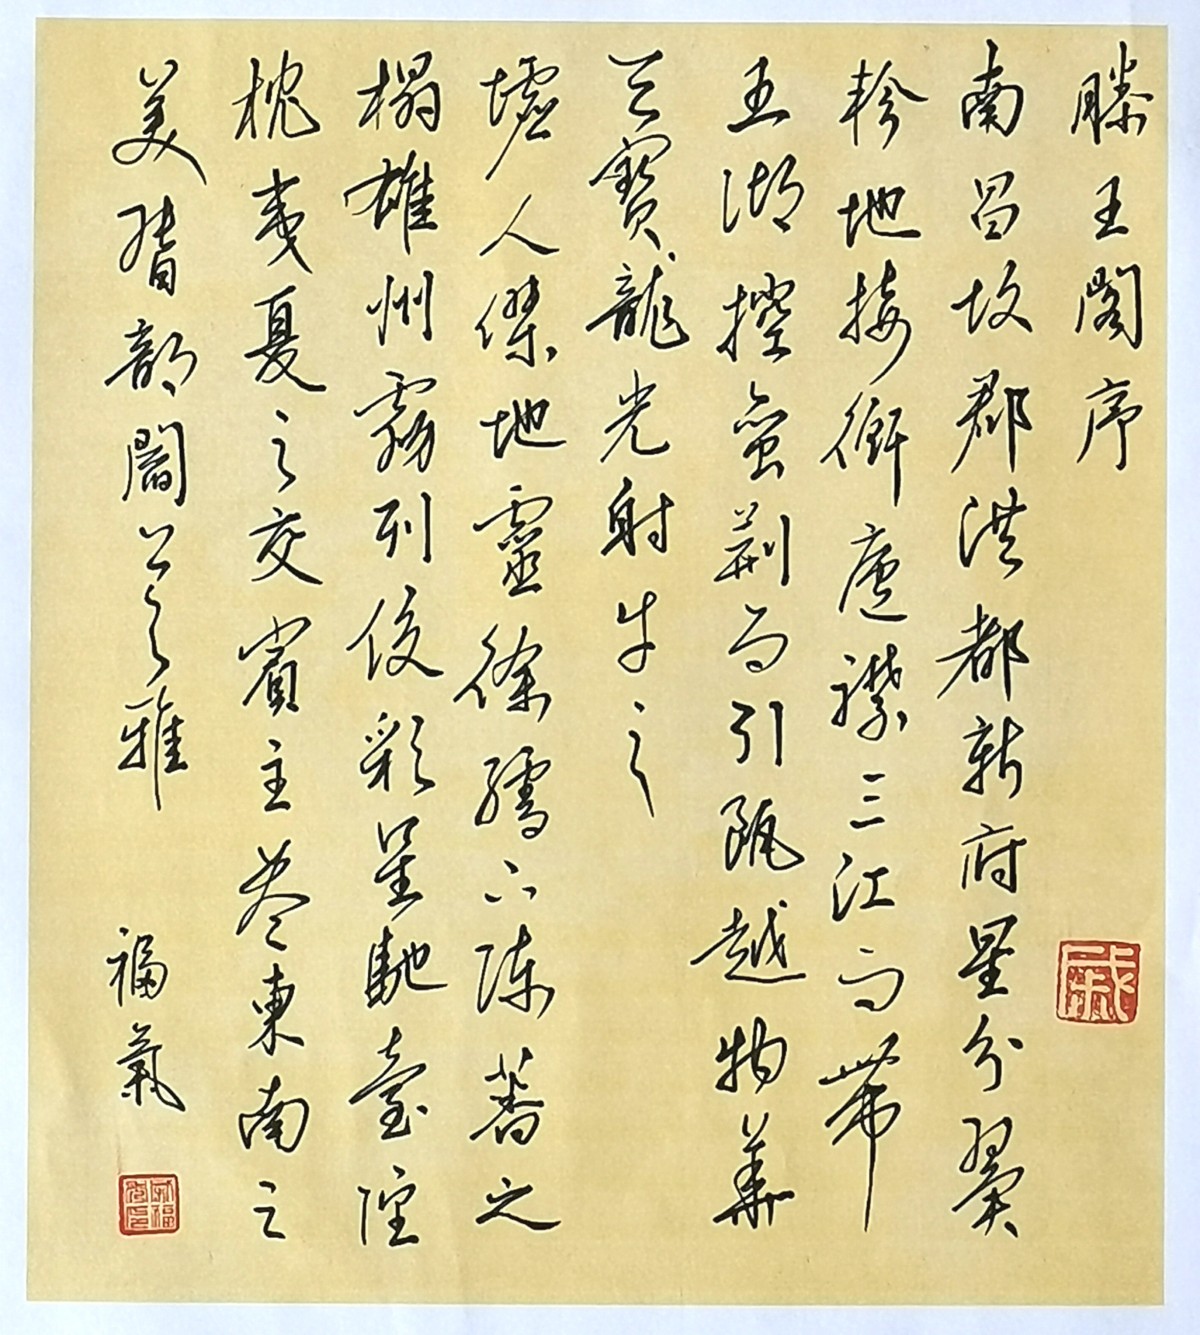 滕王閣序
南昌故郡洪都新府星分翼
軫地接衡廬襟三江而帶
五湖控蠻荊而引甌越物華
天寶龍光射牛之
墟人傑地靈徐孺下陳蕃之
榻雄州霧列俊彩星馳臺隍
枕夷夏之交賓主盡東南之
美督都閻公之雅
福氣
戚